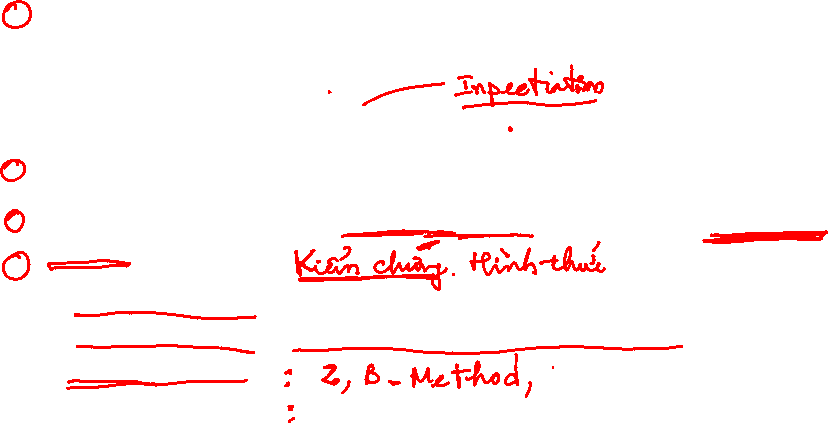 Inpectintion
Kiểm chứng. Hình thức
: Z, B - Method,
: